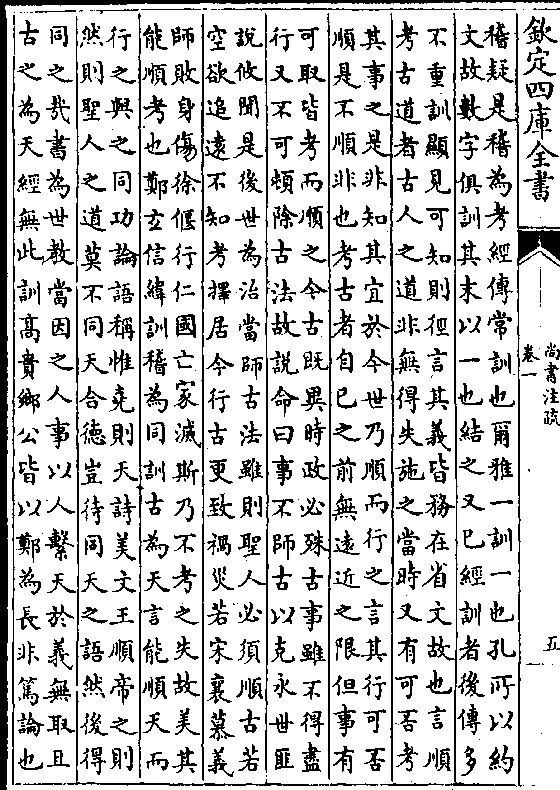 欽定四庫全書
尚書注疏
卷一
五
稽疑是稽為考經傳常訓也爾雅一訓一也孔所以約
文故數字俱訓其末以一也結之又已經訓者後傳多
不重訓顯見可知則徑言其義皆務在省文故也言順
考古道者古人之道非無得失施之當時又有可否考
其事之是非知其宜於今世乃順而行之言其行可否
順是不順非也考古者自已之前無遠近之限但事有
可取皆考而順之今古既異時政必殊古事雖不得盡
行又不可頓除古法故說命曰事不師古以克永世匪
說攸聞是後世為治當師古法雖則聖人必須順古若
空欲追遠不知考擇居今行古更致禍災若宋襄慕義
師敗身傷徐偃行仁國亡家滅斯乃不考之失故美其
能順考也鄭玄信緯訓稽為同訓古為天言能順天而
行之與之同功論語稱惟堯則天詩美文王順帝之則
然則聖人之道莫不同天合德豈待同天之語然後得
同之哉書為世教當因之人事以人繫天於義無取且
古之為天經無此訓高貴鄉公皆以鄭為長非篤論也